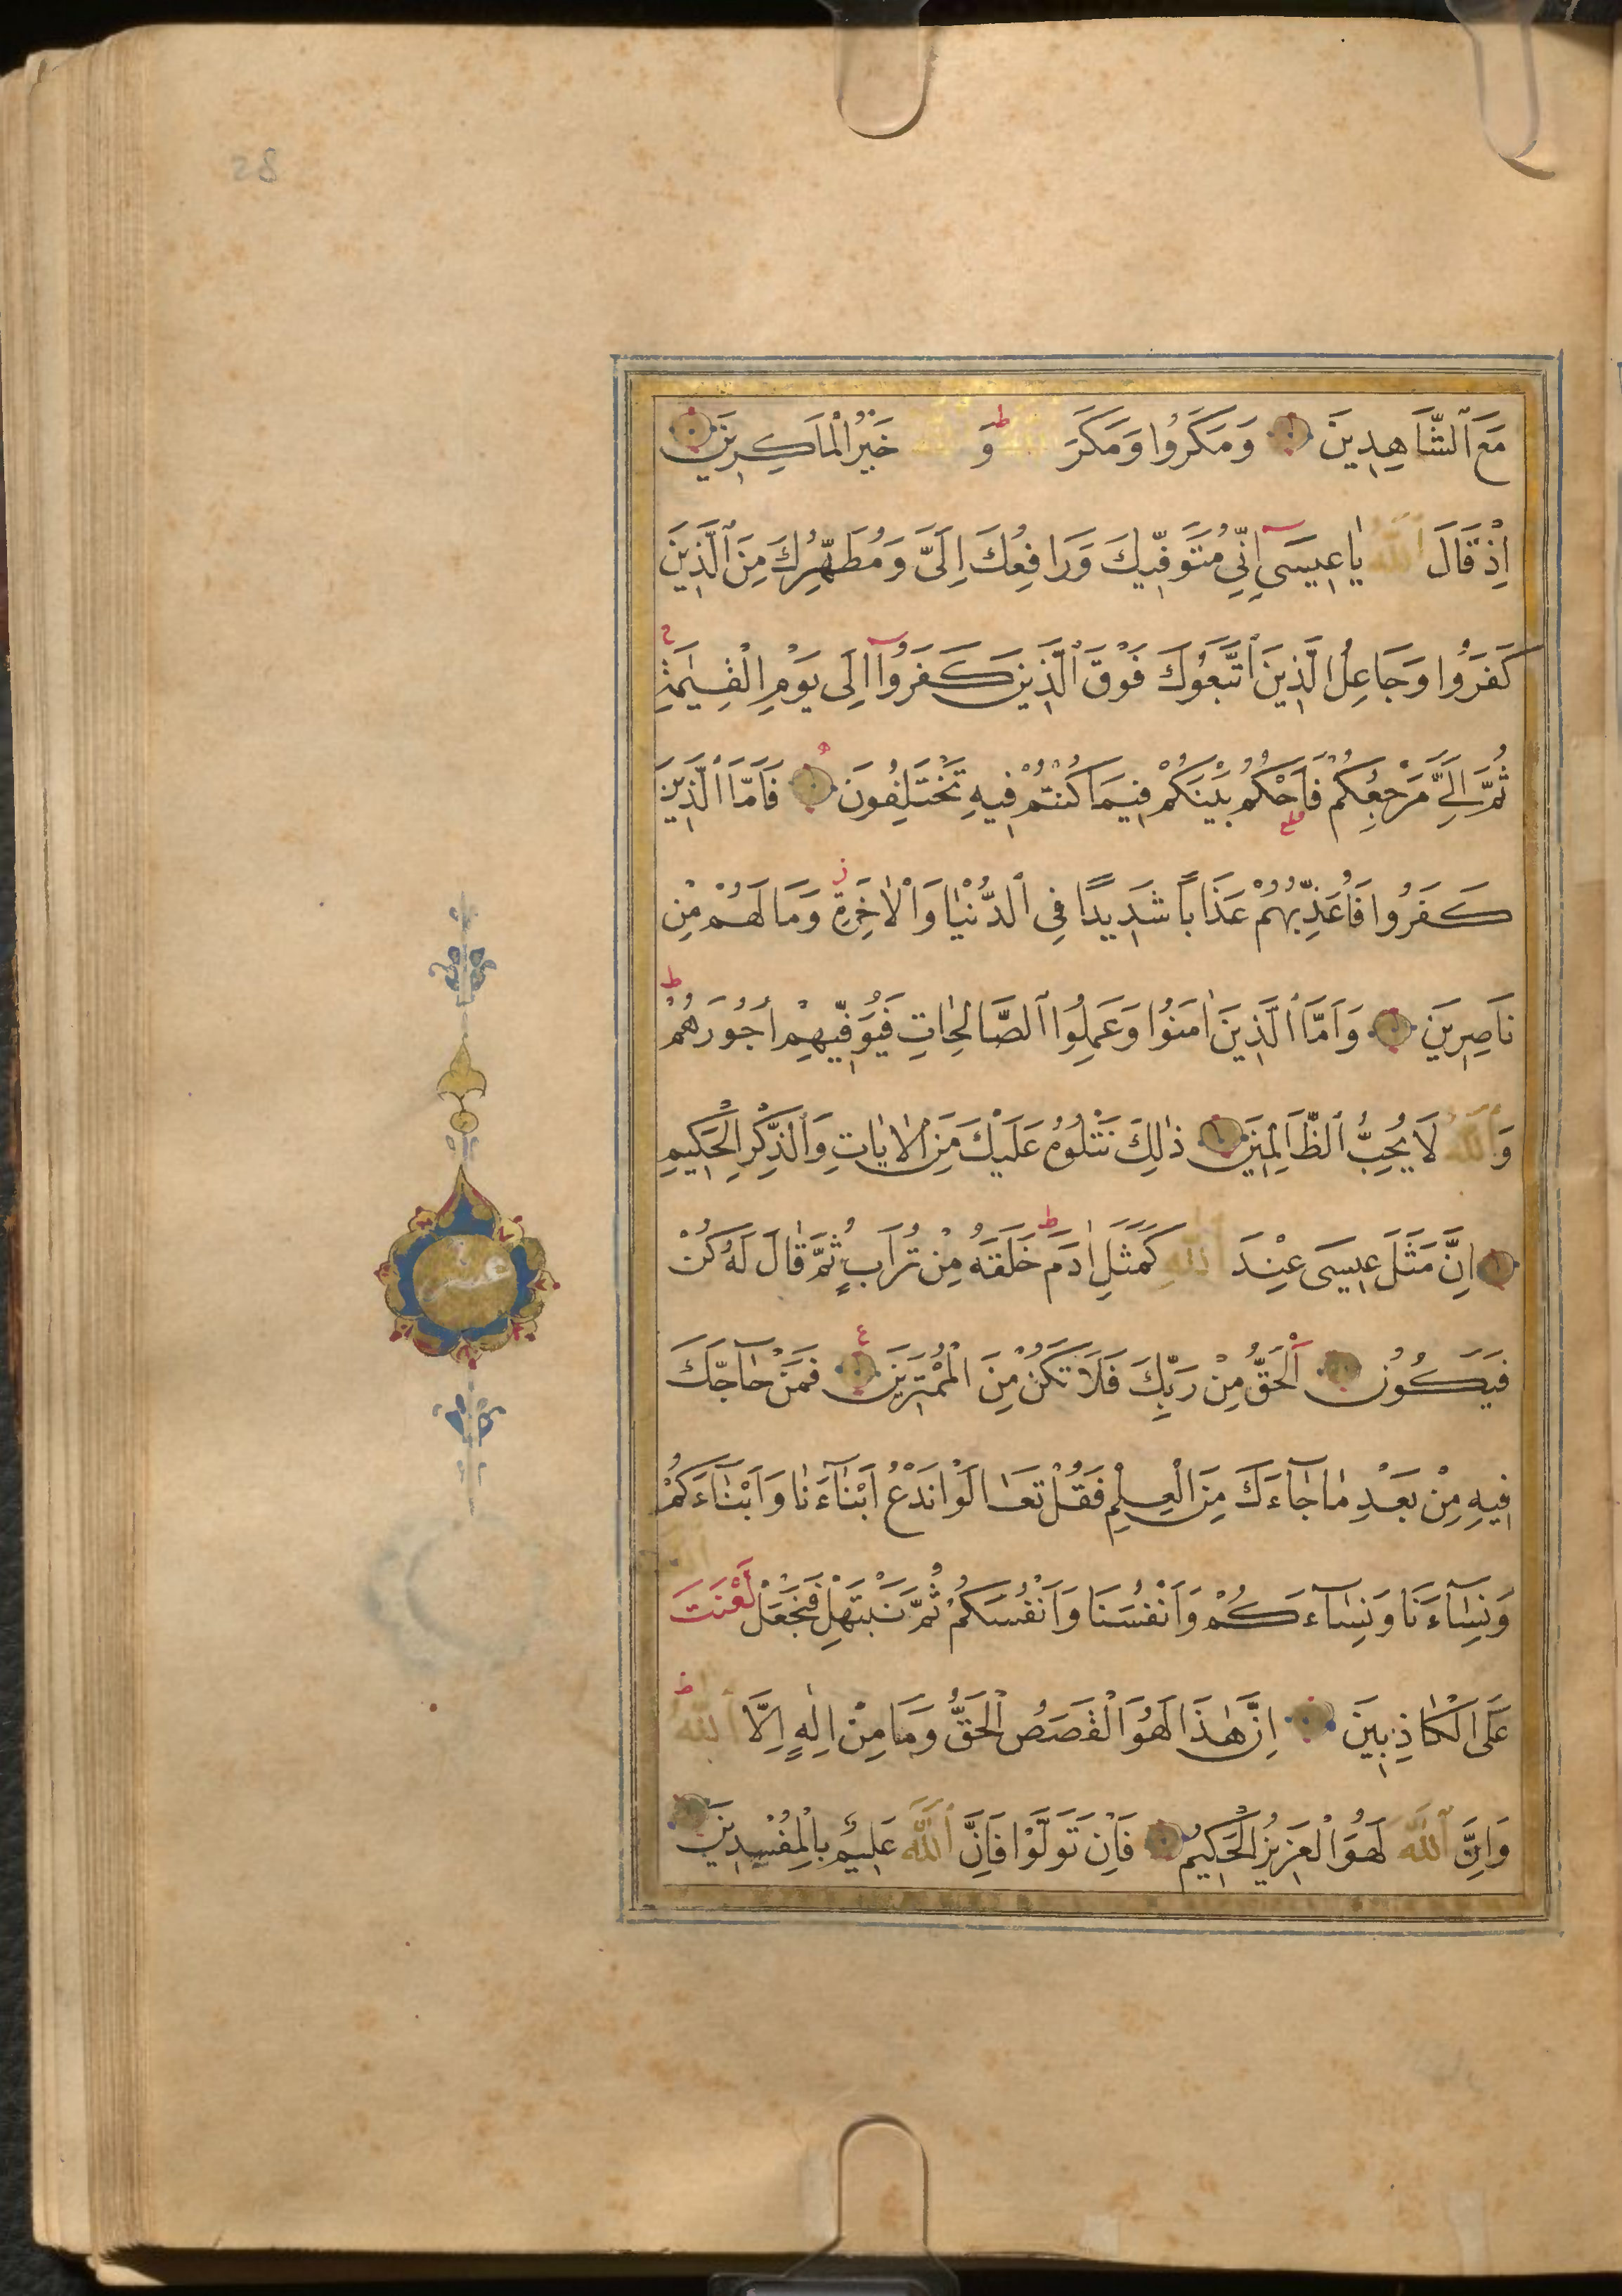 28
مَعَ ٱلشَّاهِدِينَ وَمَكَرُوا وَمَكَرَ ٱللّٰهُ ط وَٱللّٰهُ خَيْرُ الْمَاكِرِينَ
اِذْ قَالَ ٱللّٰهُ يَا عِيسَىٓ اِنِّي مُتَوَفِّيكَ وَرَافِعُكَ اِلَىَّ وَمُطَهِّرُكَ مِنَ ٱلَّذِينَ
كَفَرُوا وَجَاعِلُ الَّذِينَ ٱتَّبَعُوكَ فَوْقَ ٱلَّذِينَ كَفَرُوٓا اِلٰى يَوْمِ الْقِيٰمَةِ ج
ثُمَّ اِلَىَّ مَرْجِعُكُمْ فَاَحْكُمُ بَيْنَكُمْ فِيمَا كُنْتُمْ فِيهِ تَخْتَلِفُونَ فَاَمَّا ٱلَّذِينَ
كَفَرُوا فَاُعَذِّبُهُمْ عَذَابًا شَدِيدًا فِى ٱلدُّنْيَا وَٱلْاٰخِرَةِ ز وَمَا لَهُمْ مِنْ
نَاصِرِينَ وَاَمَّا ٱلَّذِينَ اٰمَنُوا وَعَمِلُوا ٱلصَّالِحَاتِ فَيُوَفِّيهِمْ اُجُورَهُمْ ط
وَٱللّٰهُ لَا يُحِبُّ ٱلظَّالِمِينَ ذٰلِكَ نَتْلُوهُ عَلَيْكَ مِنَ ٱلْاٰيَاتِ وَٱلذِّكْرِ الْحَكِيمِ
اِنَّ مَثَلَ عِيسَى عِنْدَ ٱللّٰهِ كَمَثَلِ اٰدَمَ ط خَلَقَهُ مِنْ تُرَابٍ ثُمَّ قَالَ لَهُ كُنْ
فَيَكُونُ اَلْحَقُّ مِنْ رَبِّكَ فَلَا تَكُنْ مِنَ الْمُمْتَرِينَ ع فَمَنْ حَآجَّكَ
فِيهِ مِنْ بَعْدِ مَا جَآءَكَ مِنَ الْعِلْمِ فَقُلْ تَعَالَوْا نَدْعُ اَبْنَآءَنَا وَاَبْنَآءَكُمْ
وَنِسَآءَنَا وَنِسَآءَكُمْ وَاَنْفُسَنَا وَاَنْفُسَكُمْ ثُمَّ نَبْتَهِلْ فَنَجْعَلْ لَعْنَتَ ٱللّٰهِ
عَلَى الْكَاذِبِينَ اِنَّ هٰذَا لَهُوَ الْقَصَصُ الْحَقُّ وَمَا مِنْ اِلٰهٍ اِلَّا ٱللّٰهُ ط
وَاِنَّ ٱللّٰهَ لَهُوَ الْعَزِيزُ الْحَكِيمُ فَاِنْ تَوَلَّوْا فَاِنَّ ٱللّٰهَ عَلِيمٌ بِالْمُفْسِدِينَ